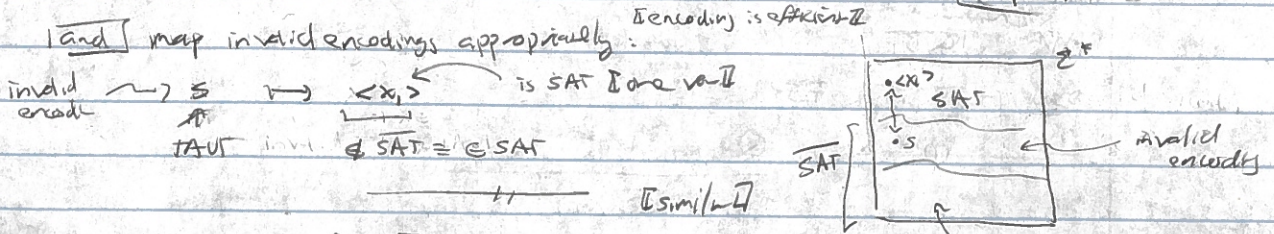 [[encoding is efficient]]
and map invalid encodings appropriately:
invalid encod. ⤳ s ↦ <x₁> is SAT [[one var]]
TAUT ∉ \overline{SAT} ≡ ∈ SAT
[[similar]]
Σ*
•<x₁>
SAT
•s
\overline{SAT}
invalid encoding